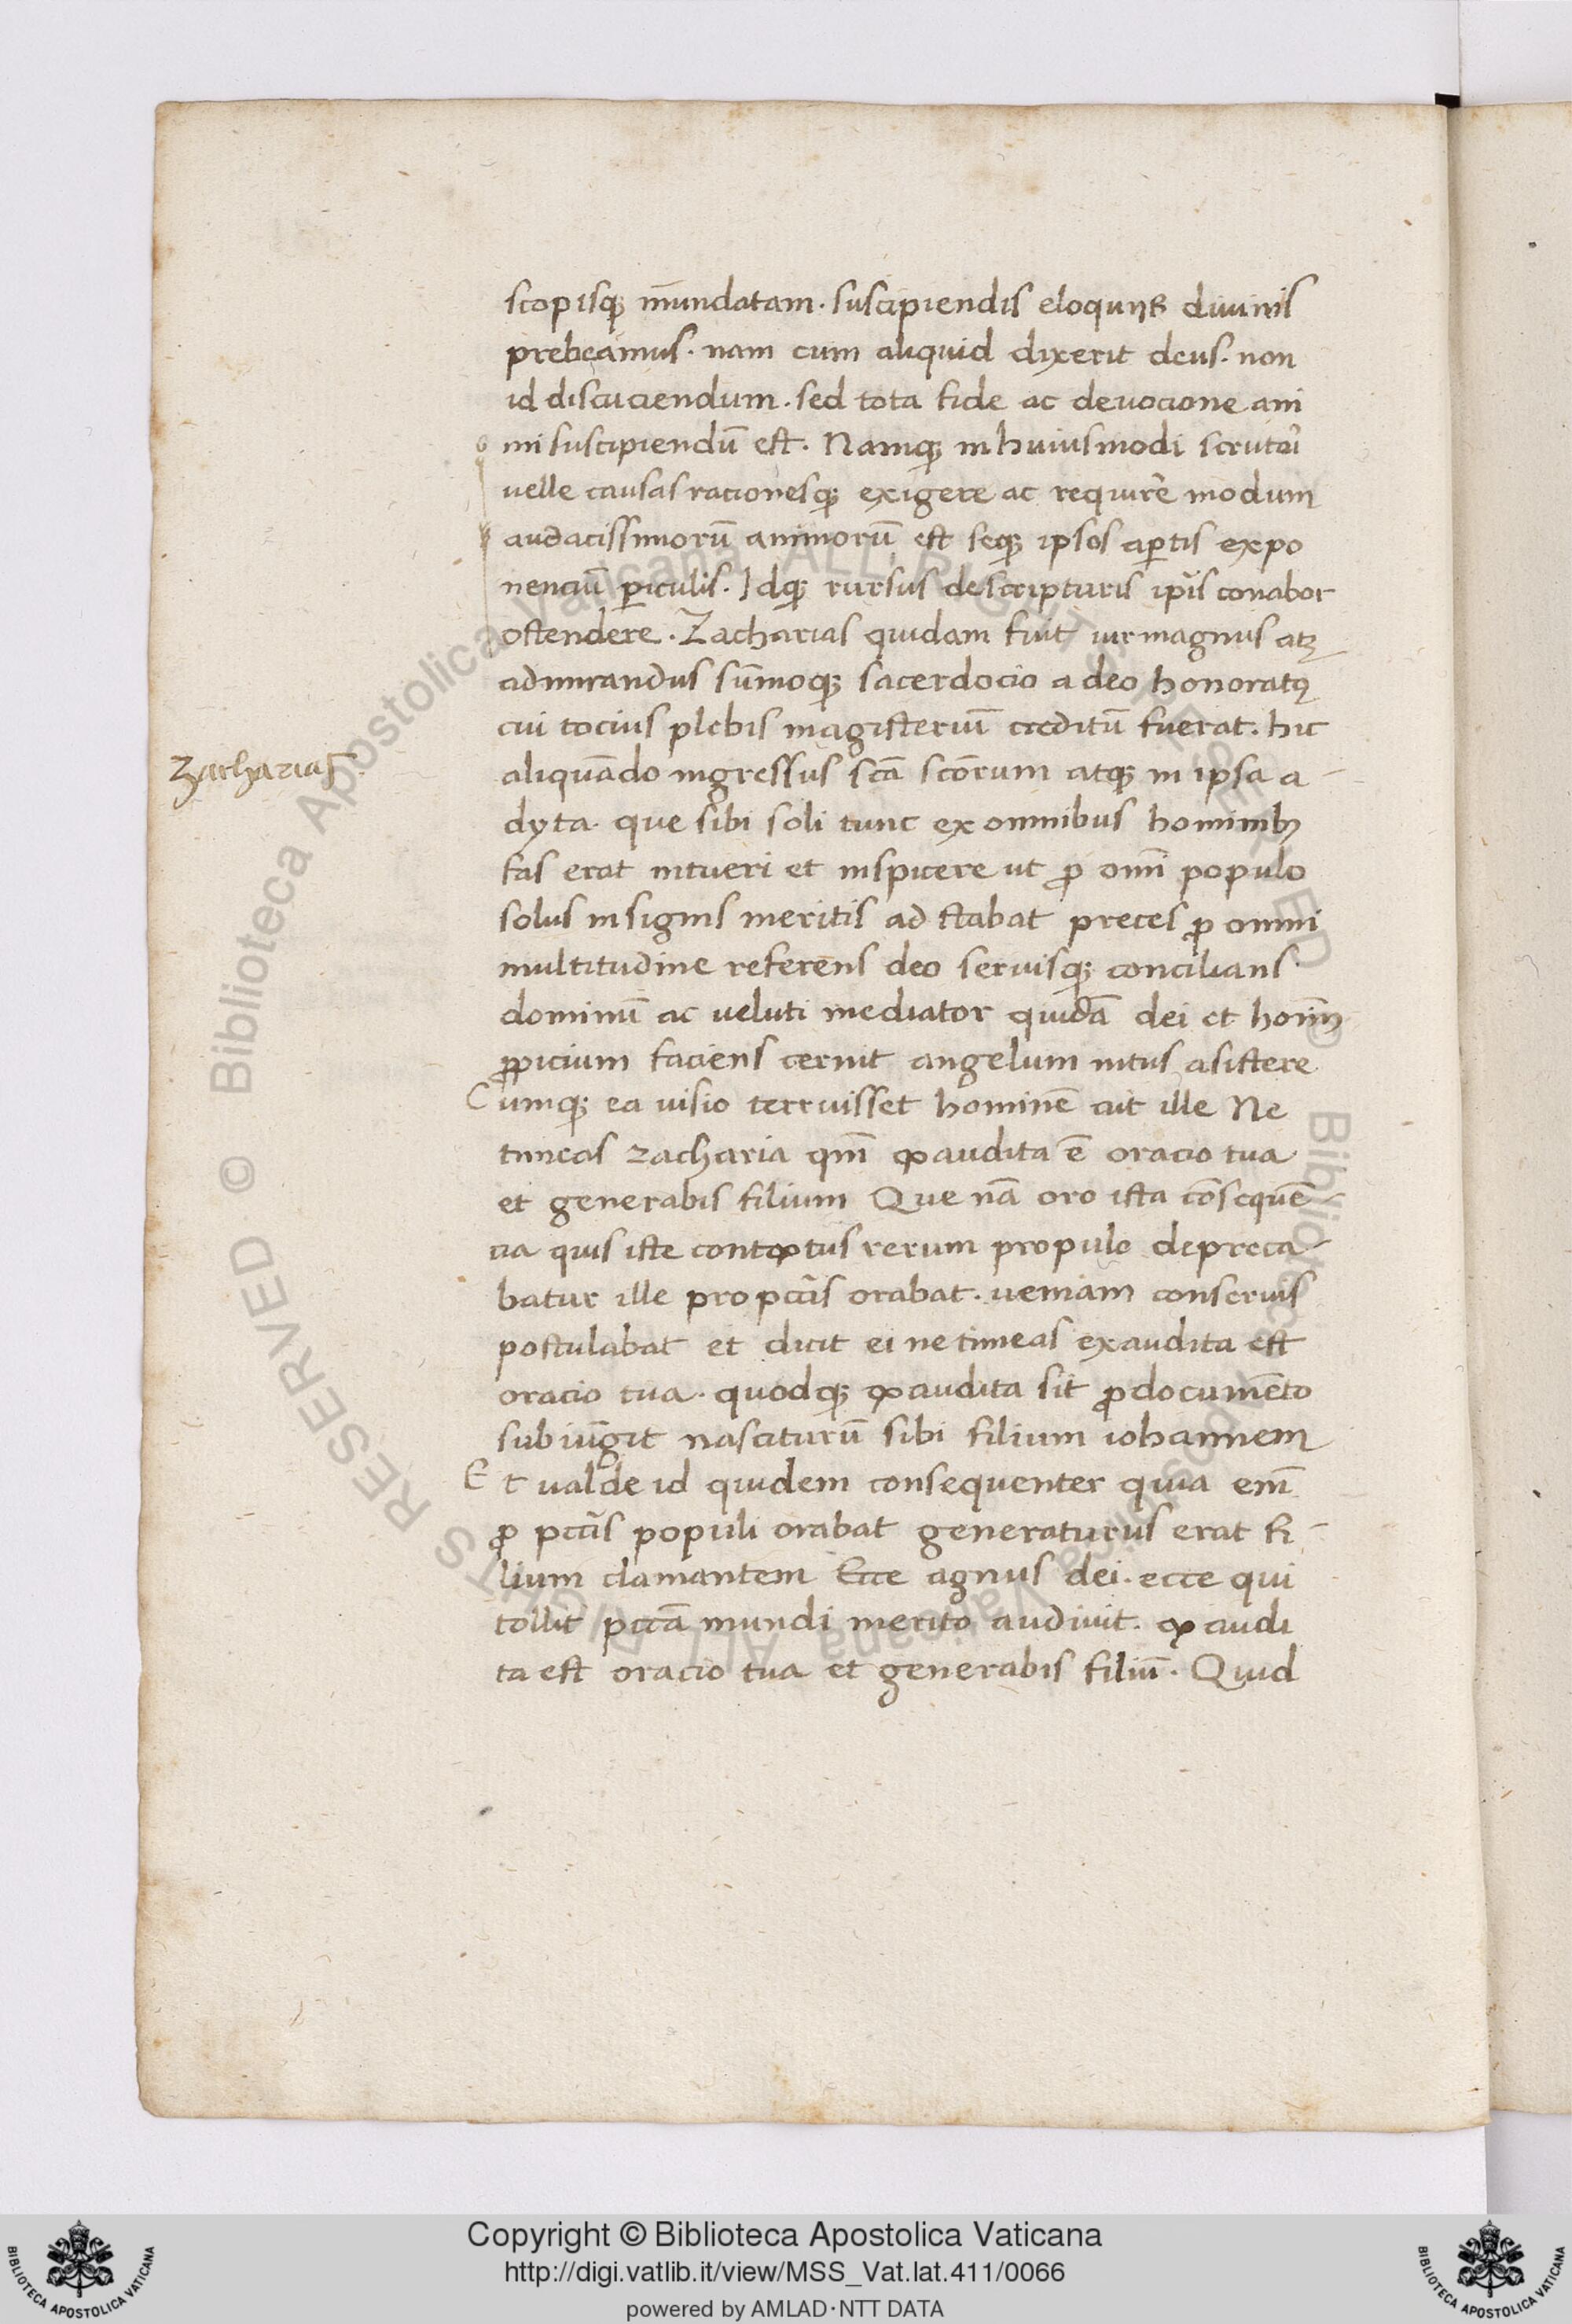 scopisq; mūndatam. suscipiendis eloquiis diuinis
prebeamus. nam cum aliquid dixerit deus. non
id discuciendum. sed tota fide ac deuocione ani
mi suscipiendū est. Namq; in huiusmodi scrutari
uelle causas racionesq; exigere ac requirē modum
audacissimorū animorū est seq; ipsos apertis expo
nenciū periculis. Idq; rursus de scripturis ip̄is conabor
ostendere. Zacharias quidam fuit uir magnus atq;
admirandus sūmoq; sacerdocio a deo honoratꝰ
cui tocius plebis magisteriū creditū fuerat. hic
Zacharias.
aliquando ingressus scā scōrum atq; in ipsa a-
dyta. que sibi soli tunc ex omnibus hominibꝫ
fas erat intueri et inspicere ut ꝓ om̄i populo
solus insignis meritis ad stabat preces ꝓ omni
multitudine referens deo seruisq; concilians.
dominū ac ueluti mediator quidā dei et homīnū
ꝓpicium faciens cernit angelum intus asistere
Cumq; ea uisio terruisset hominē ait ille Ne
timeas zacharia qm̄ exaudita ē oracio tua
et generabis filium Que nā oro ista cōsequen-
cia quis iste contextus rerum pro pulo depreca-
batur ille pro pcc̄is orabat. ueniam conseruis
postulabat et dicit ei ne timeas exaudita est
oracio tua. quodq; exaudita sit ꝓ documēto
subiūgit nasciturū sibi filium iohannem
Et ualde id quidem consequenter quia em̄
ꝓ pcc̄is populi orabat generaturus erat fi-
lium clamantem Ecce agnus dei. ecce qui
tollit pccā mundi merito audiuit. exaudi
ta est oracio tua et generabis filiū. Quid
Copyright © Biblioteca Apostolica Vaticana
http://digi.vatlib.it/view/MSS_Vat.lat.411/0066
powered by AMLAD·NTT DATA
BIBLIOTECA APOSTOLICA VATICANA
BIBLIOTECA APOSTOLICA VATICANA
© Biblioteca Apostolica Vaticana ALL RIGHTS RESERVED © Biblioteca Apostolica Vaticana ALL RIGHTS RESERVED